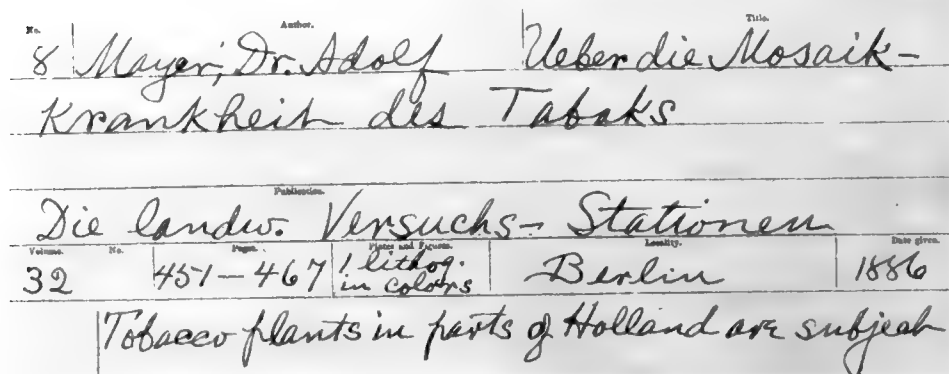 No. Author. Title.
8 Mayer, Dr. Adolf Ueber die Mosaik-
Krankheit des Tabaks
Publication.
Die landw. Versuchs-Stationen
Volume. No. Pages. Plates and Figures. Locality. Date given.
32 451-467 1 lithog. in colors Berlin 1886
Tobacco plants in parts of Holland are subject